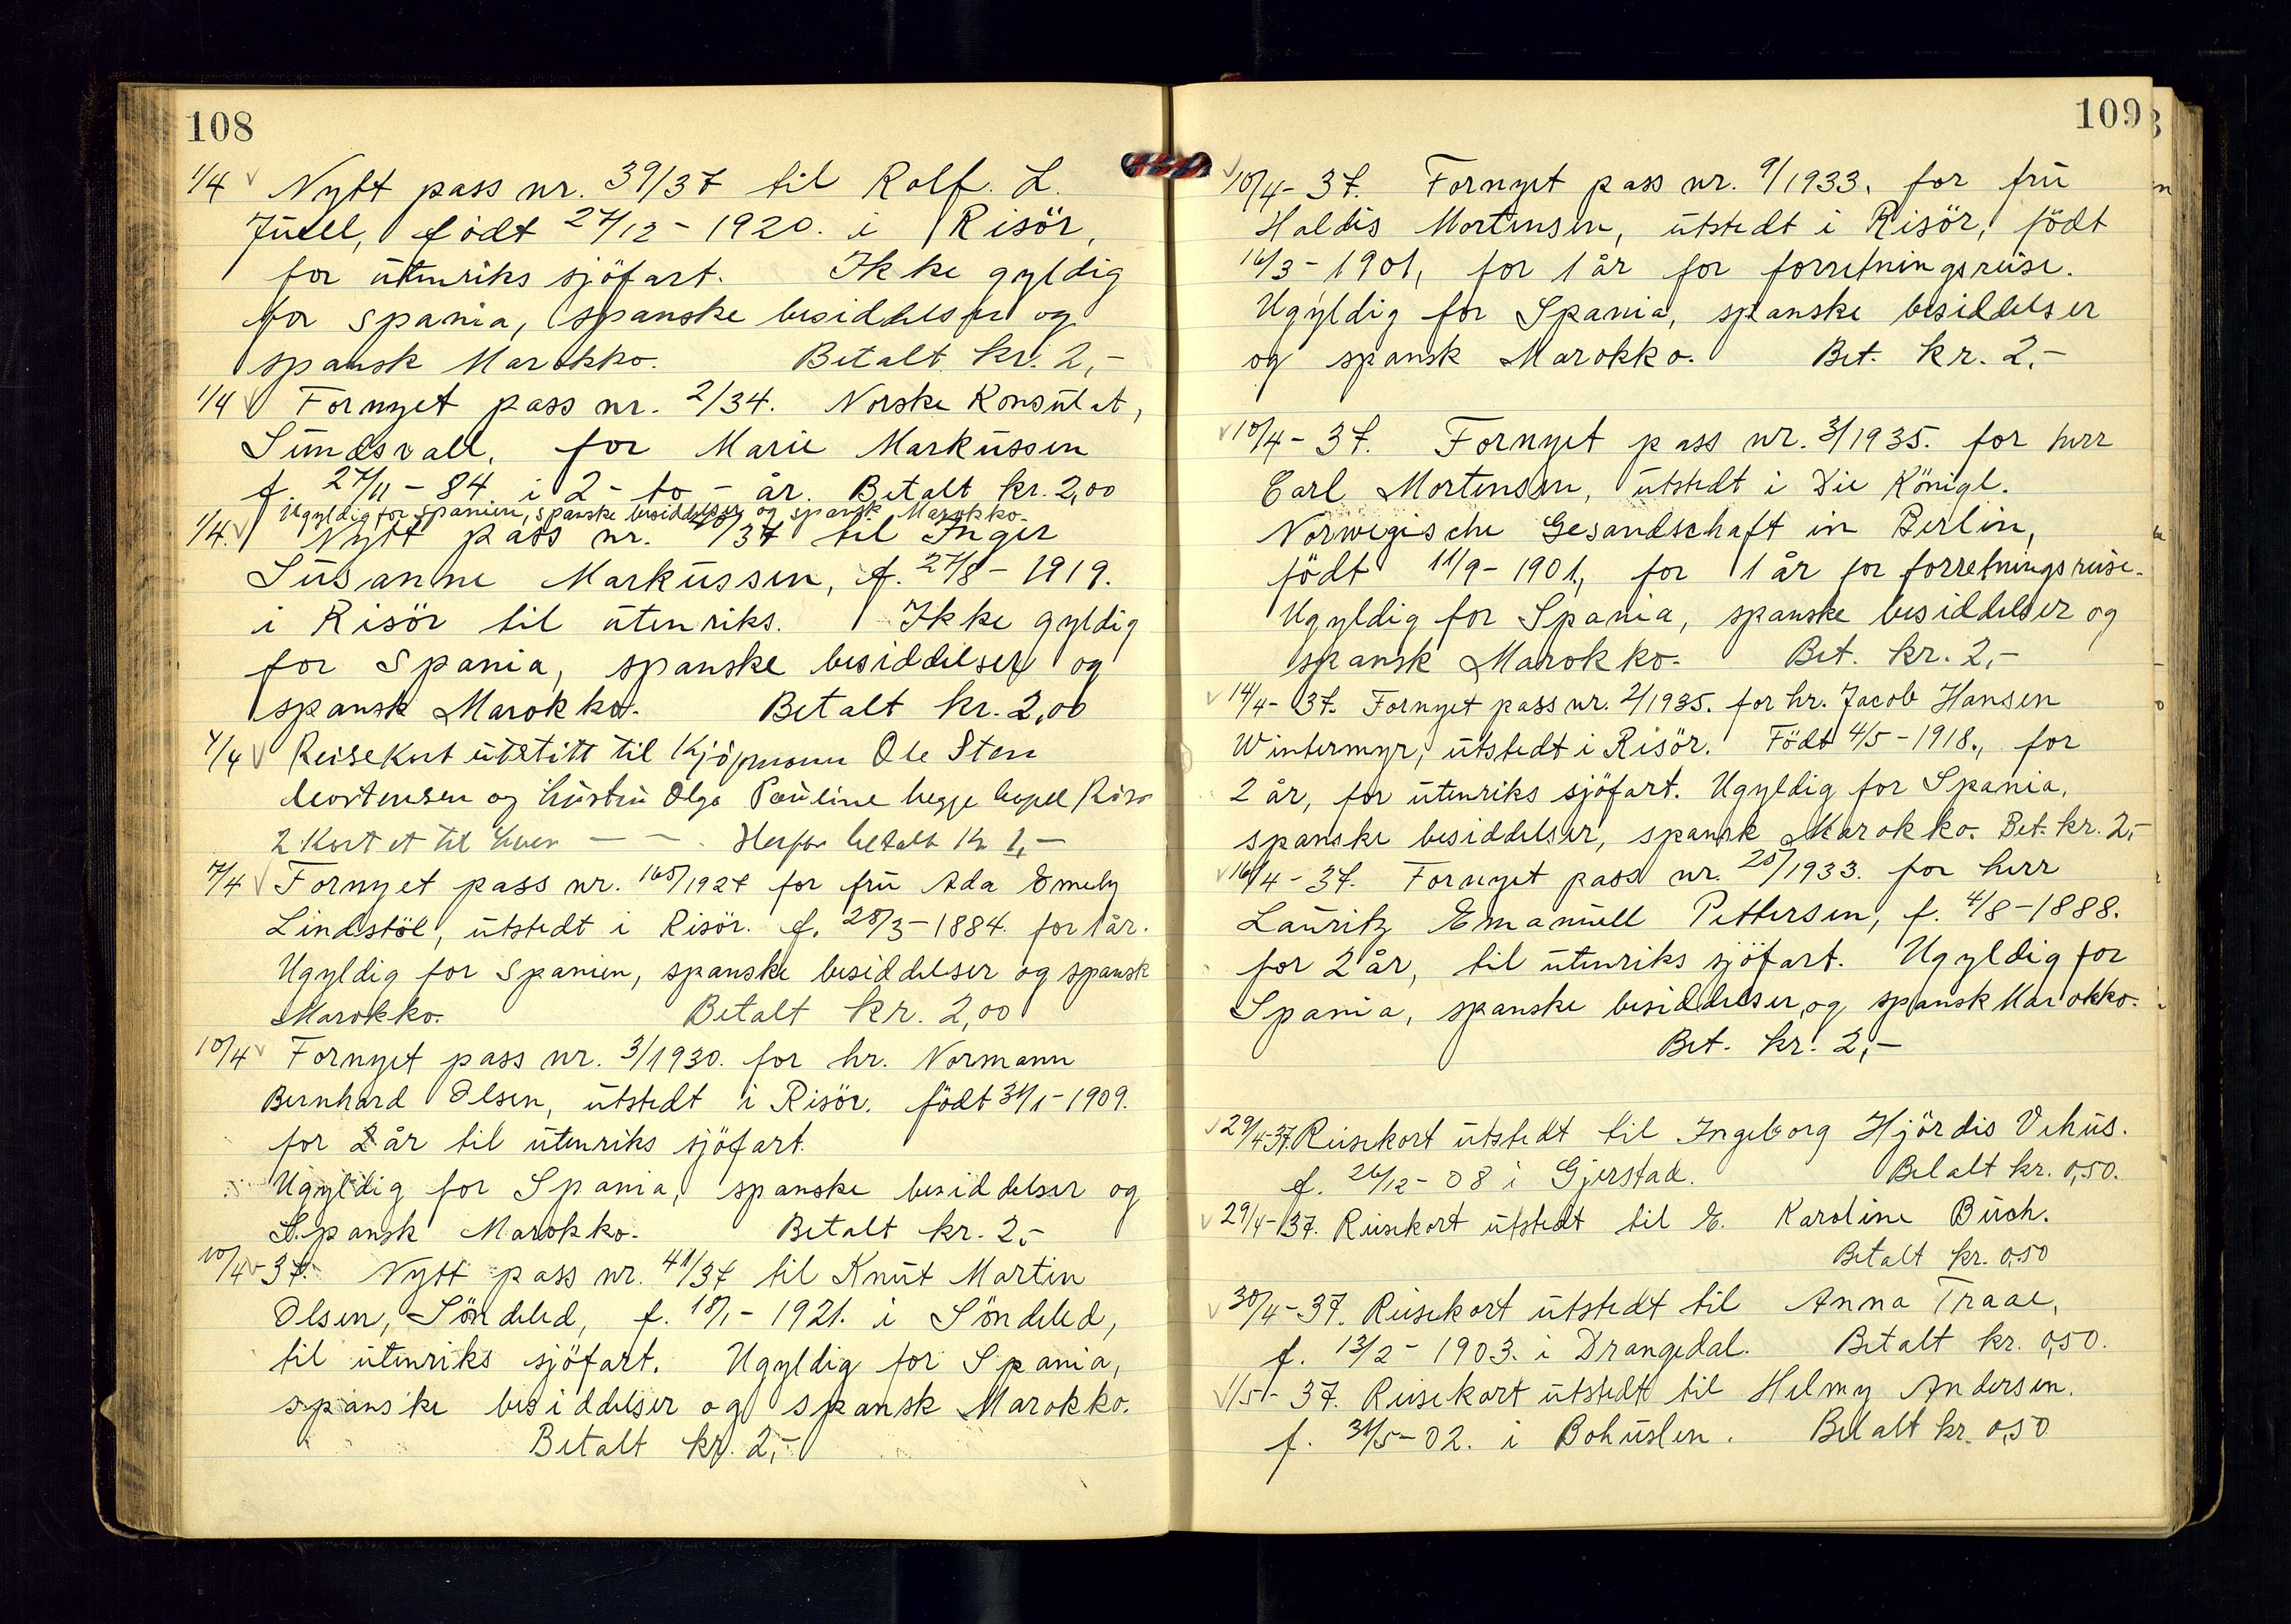 108
1/4 Nytt pass nr. 39/37 til Rolf. L.
Juell, født 27/12 - 1920. i Risör,
for utenriks sjöfart. Ikke gyldig
for Spania, spanske besiddelser og
spansk Marokko. Betalt kr. 2,-
1/4 Fornyet pass nr. 2/34. Norske Konsulat,
Sundsvall, for Marie Markussen
f. 27/11 - 84 i 2 - to - år. Betalt kr. 2,00
Ugyldig for Spanien, spanske besiddelser og spansk Marokko.
1/4. Nytt pass nr. 40/37 til Inger
Susanne Markussen, f. 27/8 - 1919.
i Risör til utenriks. Ikke gyldig
for Spania, spanske besiddelser og
spansk Marokko. Betalt kr. 2,00
Reisekort utstitt til Kjöpmann Ole Sten
Mortensen og hustru Olga Pauline begge bopel Risør
2 Kort et til hver - - Herfor betalt Kr 1,-
7/4 Fornyet pass nr. 165/1927 for fru Ada Emely
Lindstöl, utstedt i Risör. f. 28/3 - 1884. for 1 år.
Ugyldig for Spanien, spanske besiddelser og spansk
Marokko. Betalt kr. 2,00
10/4 Fornyet pass nr. 3/1930. for hr. Normann
Bernhard Olsen, utstedt i Risör. født 31/1 - 1909.
for 2 år til utenriks sjöfart.
Ugyldig for Spania, spanske besiddelser og
Spansk Marokko. Betalt kr. 2,-
10/4 - 37. Nytt pass nr. 41/37 til Knut Martin
Olsen, Söndeled, f. 18/1 - 1921. i Söndeled,
til utenriks sjöfart. Ugyldig for Spania,
spanske besiddelser og spansk Marokko.
Betalt kr. 2,-
109
10/4 - 37. Fornyet pass nr. 9/1933. for fru
Haldis Mortensen, utstedt i Risör, födt
16/3 - 1901, for 1 år for forretningsreise.
Ugyldig for Spania, spanske besiddelser
og spansk Marokko. Bet. kr. 2.-
10/4 - 37. Fornyet pass nr. 3/1935. for herr
Carl Mortensen, utstedt i Die Königl.
Norwegische Gesandschaft in Berlin,
födt 11/9 - 1901, for 1 år for forretningsreise.
Ugyldig for Spania, spanske besiddelser og
spansk Marokko. Bet. kr. 2,-
14/4 - 37. Fornyet pass nr. 2/1935. for hr. Jacob Hansen
Wintermyr, utstedt i Risör. Født 4/5 - 1918., for
2 år, for utenriks sjöfart. Ugyldig for Spania,
spanske besiddelser, spansk Marokko. Bet. kr. 2,-
16/4 - 37. Fornyet pass nr. 25/1933. for herr
Lauritz Emanuell Pettersen, f. 4/8 - 1888.
for 2 år, til utenriks sjöfart. Ugyldig for
Spania, spanske besiddelser, og spansk Marokko.
Bet. kr. 2,-
29/4-37 Reisekort utstedt til Ingeborg Hjördis Vehus.
f. 26/12 - 08 i Gjerstad. Betalt kr. 0,50.
29/4 - 37. Reisekort utstedt til E. Karoline Buch.
Betalt kr. 0,50
30/4 - 37. Reisekort utstedt til Anna Traae,
f. 13/2 - 1903. i Drangedal. Betalt kr. 0,50.
1/5 - 37. Reisekort utstedt til Helmy Andersen.
f. 31/5 - 02. i Bohuslen. Betalt kr. 0,50